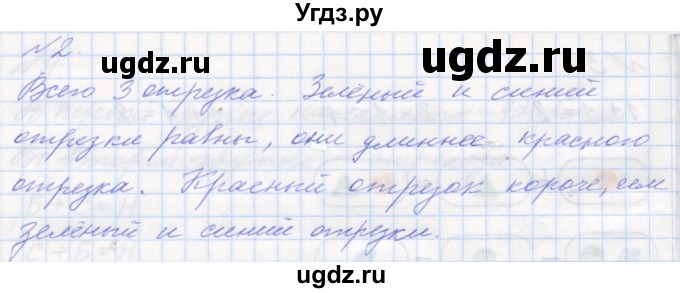 Угдз.ру
№2.
ugdz.ru
ugdz.ru
Всего 3 отрезка. Зелёный и синий
отрезки равны, они длиннее красного
отрезка. Красный отрезок короче, чем
зелёный и синий отрезки.
ugdz.ru